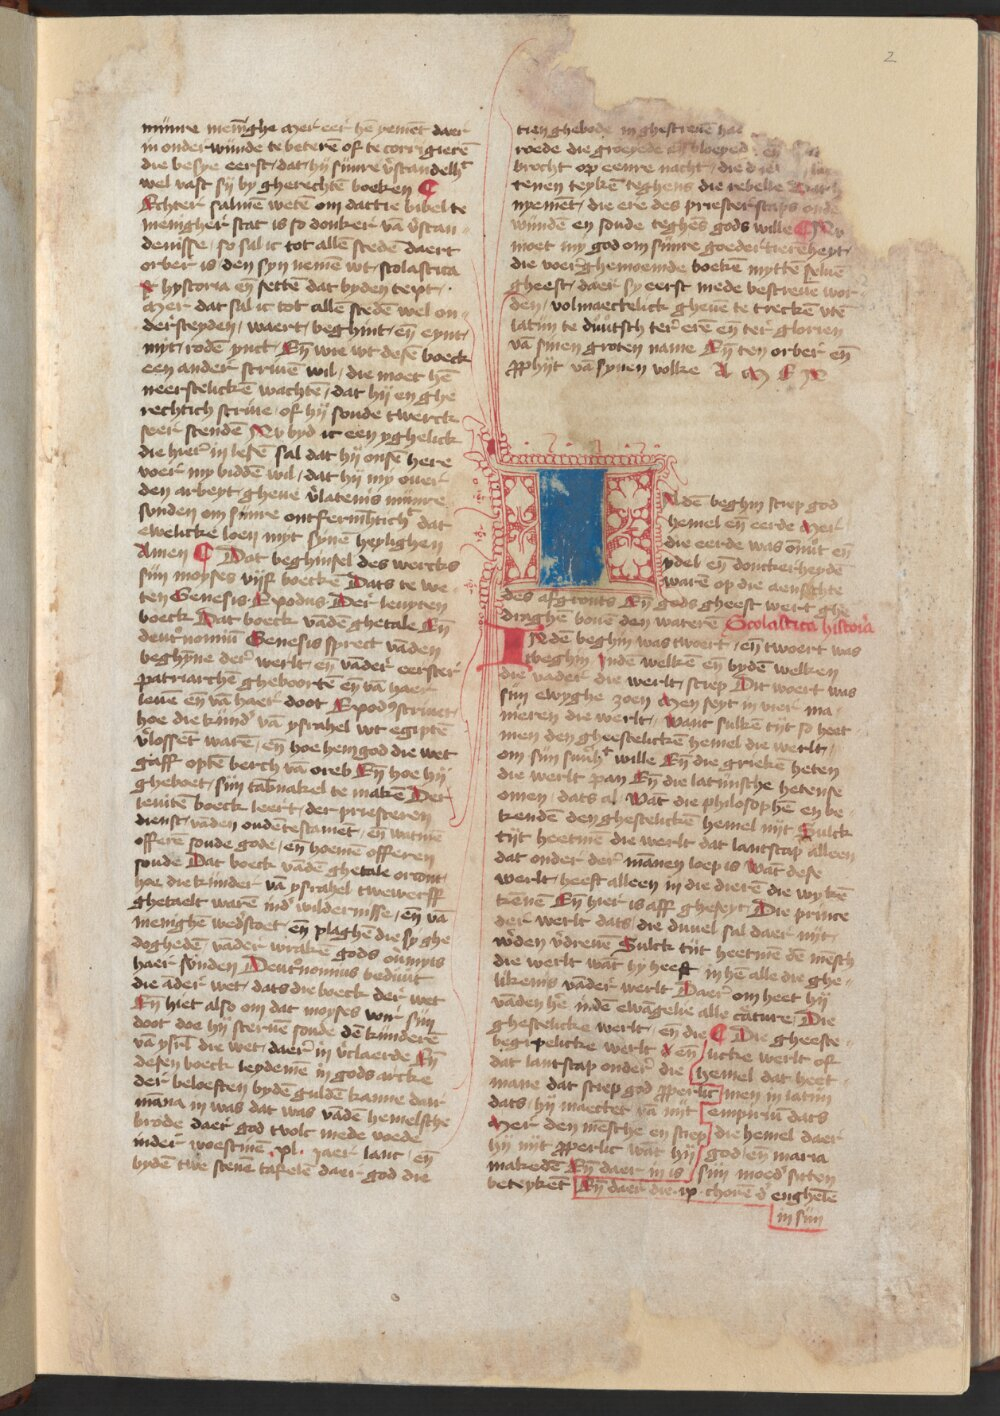 2
minre menīghe Mer eer hē yemēt daer
in onder wīnde te beterē of te corrigierē
die besye eerst / dat hij sinre v̄standelh͛
wel vast sij by gherechtē boeken ¶
Echter salmē wetē om dattie bibel te
menigher stat is so donker vā v̄stan-
denisse / so sal ic tot allē stedē daert
orber is / den syn nemē wt / scolastica
hystoria eñ settē dat byden text /
Mer dat sal ic tot allē stedē wel on-
dersceyden / waert / beghint / eñ eynt /
mit rodē ynct / Eñ wie wt desē boeck
een ander scriuē wil / die moet hē
neerstelickē wachtē / dat hij en ghe
rechtich scriue / of hij soude twerck
seer scendē Nv byd ic een yghelick
die hier in lesē sal dat hij onsē here
voer my biddē wil / dat hij my ouer
den arbeyt / gheue v̄latenis mijnre
sunden om sinre ontfermh͛tich͛ dat
ewelicke loen myt sijnē heylighen
Amen ¶ Dat beghinsel des wercks
sijn moyses vijf boeckē Dats te we-
ten Genesis. Exodus Der leuyten
boeck Dat boeck vādē ghetale Eñ
deutronomiū Genesis sprect vāden
beghīne der werlt / eñ vāder eerster
patriarchē gheboortē eñ vā haer
leuē eñ vā haer doot Exodus scriuet /
hoe die kīnd͛ vā ysrahel wt egiptē
v̄lossēt warē / eñ hoe hem god die wet
gaff optē berch vā oreb Eñ hoe hij
gheboet / sijn tab͛nakel te makē Der
leuitē boeck leert / der priesteren
dienst / vādē oudē testamēt / eñ watmē
offerē soude gode / eñ hoemē offeren
soude Dat boeck vādē ghetale orcont /
hoe die kijnder vā ysrahel twewerff
ghetaelt warē ind͛ wildernisse / eñ vā
menighē wed͛stoet eñ plaghē die sy ghe
doghedē vāder wrakē gods ouermits
haer sūnden Deutronomius beduut
die ader wet / dats die boeck der wet
Eñ hiet also om dat moyses voir sijn
doot doe hij steruē soude dē kīnderē
vā ysrl̄ die wet / daer in v̄claerde Eñ
desen boeck leydemē in gods arcke
der beloeften bydē guldē kanne daer
māna in was dat was vādē hemelsche
brode daer god tvolc mede voede
inder woestinē .xl. jaer lanc / eñ
bydē twe stenē tafelē daer god die
tien ghebode in ghescreuē had
roede die groeyede ass bloeyed eñ
brocht op eenre nacht / die
tenen teykē teghens die rebelle
nyemēt / die ere des priesterscaps onder
wijndē en soude teghēs gods wille ¶ Nv
moet my god om sijnre goedertierēheyt /
die voerghenoemde boekē mytten seluē
gheest / daer sy eerst mede bescreuē wor-
den / volmaectelick gheuē te treckē vtē
latijn te duutsch ter erē eñ ter glorien
vā sinen groten name Eñ ten orber eñ
ꝓfijt vā synen volke AMEN
Nden beghin sciep god
hemel eñ eerde Mer
die eerde was onnut eñ
ydel eñ donckerheydē
warē op die aensichte
des afgronts Eñ gods gheest wert ghe
draghē bouē den waterē Scolastica historia
INdē beghin was twoert / eñ twoert was
tbeghin Inde welkē eñ bydē welken
die vader die werlt / sciep Dit woert was
sijn ewyghe zoen Men seyt in vier ma-
nieren die werlt / Want sulkē tijt so heet
men den gheestelickē hemel die werlt /
om sijn suuh͛t wille Eñ die griekē heten
die werlt pan Eñ die latijnsche hetense
omen / dats al / Wāt die philosophē en be-
kendē den ghestelickē hemel nijt Sulck
tijt heetmē die werlt dat lantscap alleen
dat onder der manen loep is Wāt dese
werlt / heeft alleen in die dierē die wy kē
kēnē Eñ hier is aff gheseyt Die prince
der werlt dats / die duuel sal daer wt /
w͛den v̄dreuē Sulck tijt heetmē dē mēsch
die werlt wāt hij heeft in hē alle die ghe-
likenis vāder werlt Daer om heet hij
vāden h͛e indē ewāgelie alle c͛ature Die
ghestelicke werlt / en die ¶ Die gheeste-
begripelicke werlt eñ licke werlt of
dat lantscap onder die hemel dat heet-
mane dat sciep god ꝓperlic men in latijn
dats / hij maectet vā nijt empiriū dats
Mer den mēsche en sciep die hemel daer
hij nijt ꝓperlic wāt hij god / eñ maria
makedē Eñ daer in is sijn moed͛ sitten
beteykēt Eñ daer die .ix. chorē d͛ enghelē
in sijn